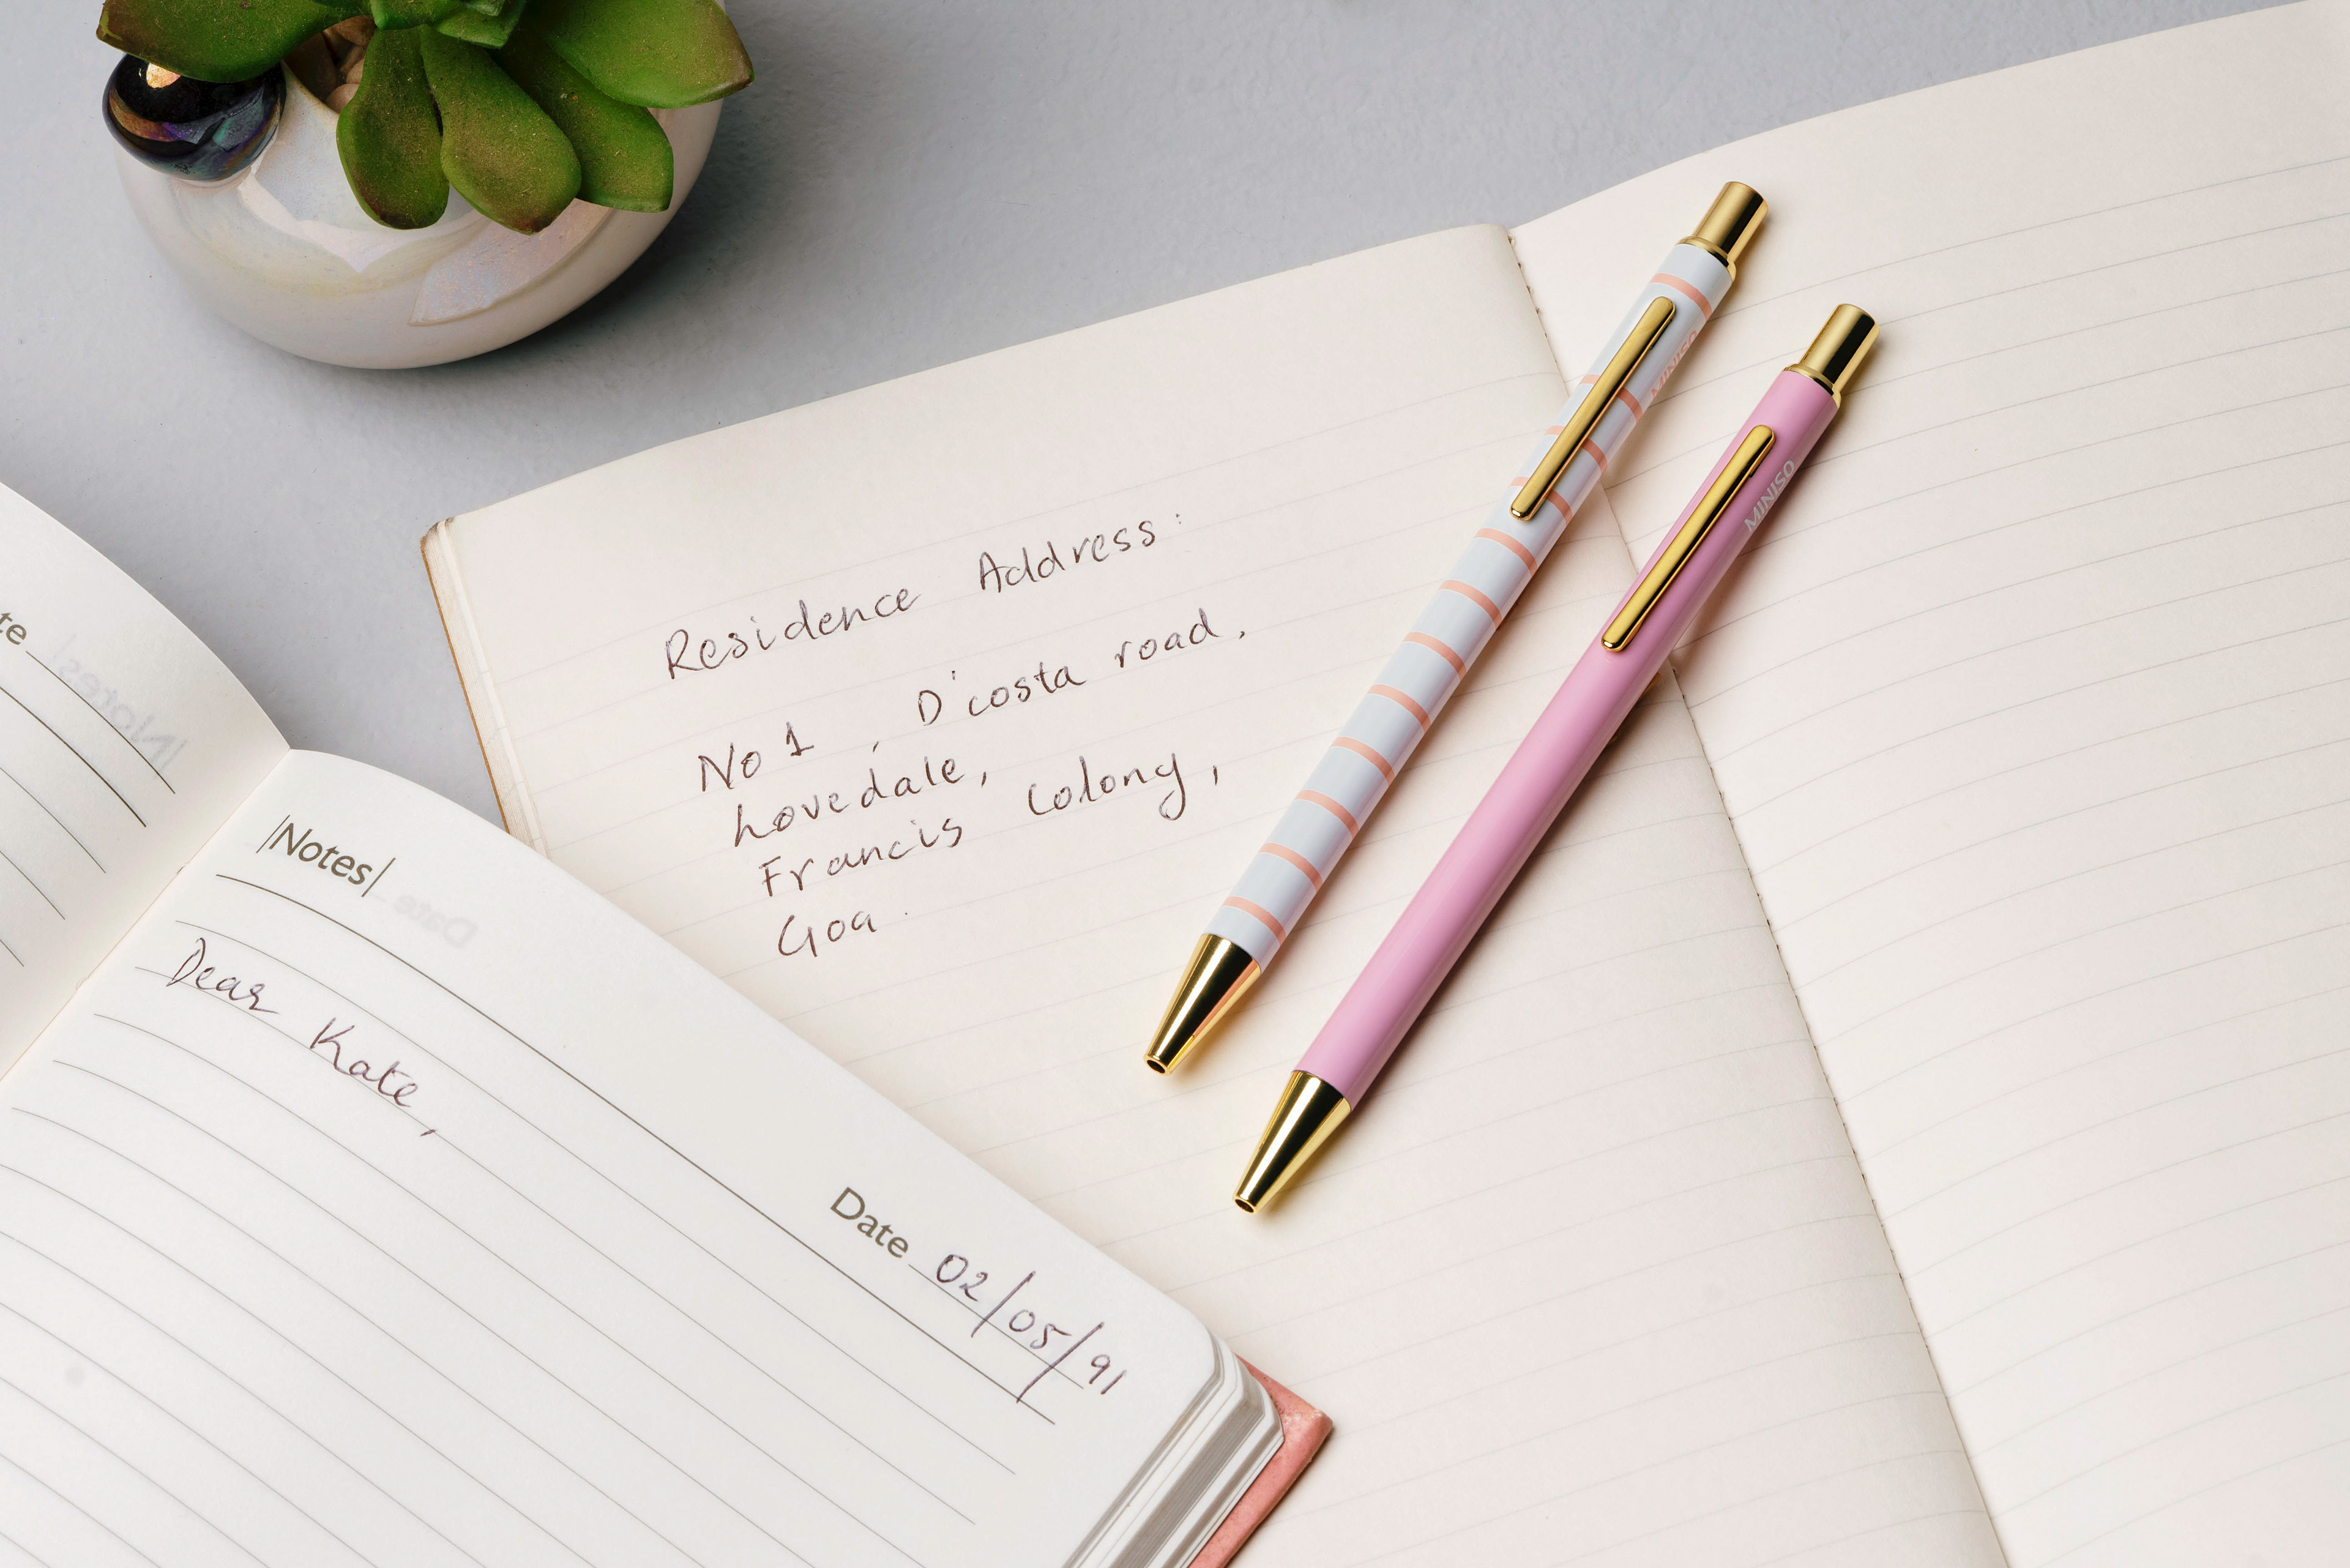 Residence Address:
No 1, D'costa road,
Lovedale,
Francis Colony,
Goa.
|Notes|
Dear Kate,
Date 02/05/91
MINISO
MINISO